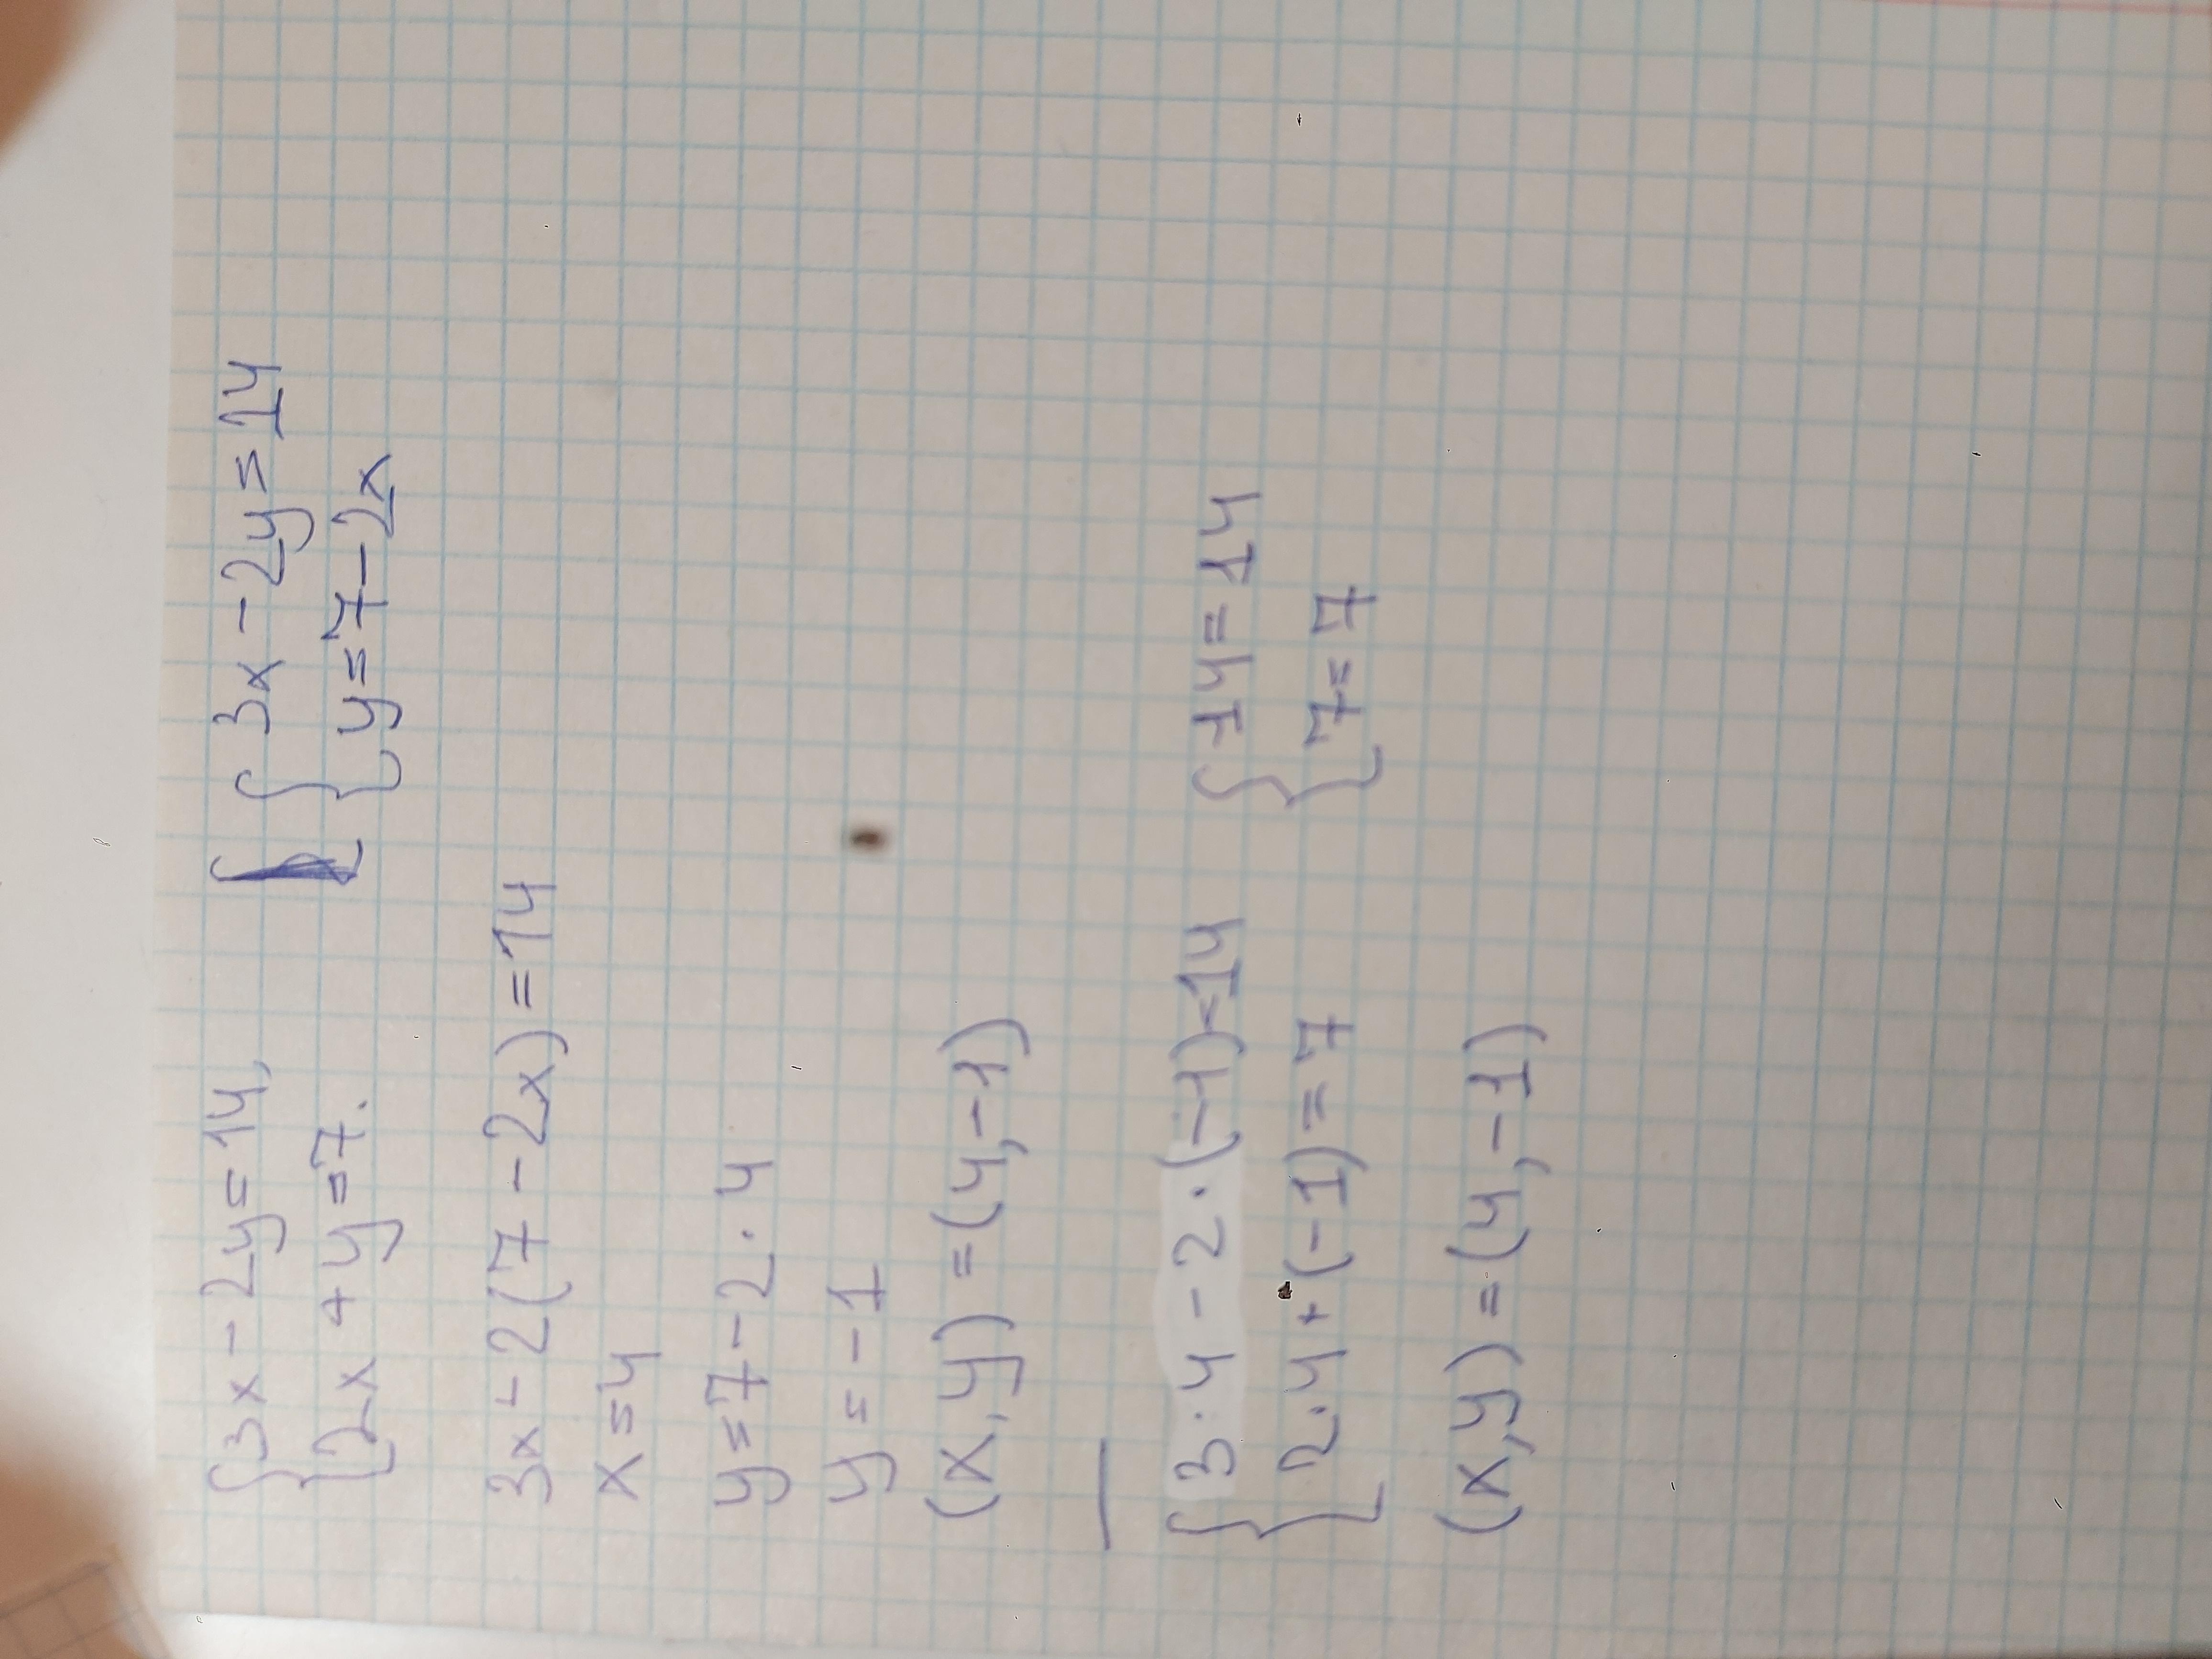 {3x - 2y = 14, {3x - 2y = 14
{2x + y = 7. {y = 7 - 2x
3x - 2(7 - 2x) = 14
x = 4
y = 7 - 2 · 4
y = -1
(x, y) = (4, -1)
{3 · 4 - 2 · (-1) = 14 {14 = 14
{2 · 4 + (-1) = 7 {7 = 7
(x, y) = (4, -1)